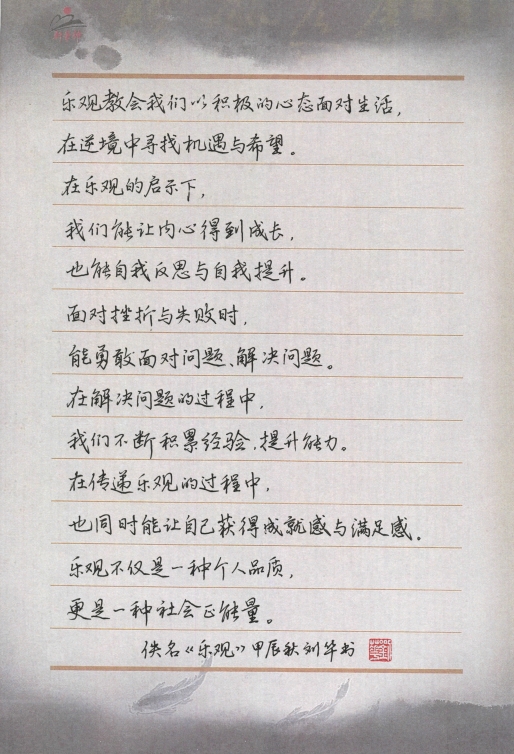 乐观教会我们以积极的心态面对生活，
在逆境中寻找机遇与希望。
在乐观的启示下，
我们能让内心得到成长，
也能自我反思与自我提升。
面对挫折与失败时，
能勇敢面对问题、解决问题。
在解决问题的过程中，
我们不断积累经验，提升能力。
在传递乐观的过程中，
也同时能让自己获得成就感与满足感。
乐观不仅是一种个人品质，
更是一种社会正能量。
佚名《乐观》甲辰秋刘华书